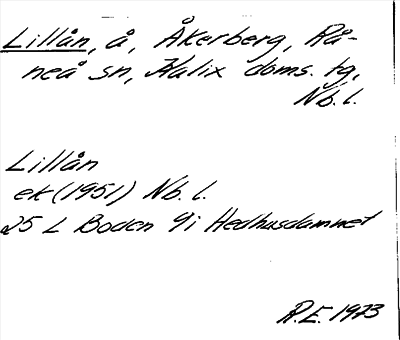 Lillån, å, Åkerberg, Rå-
neå sn, Kalix doms. tg,
Nb. l.
Lillån
ek (1951) Nb. l.
25 L Boden 9i Hedhusdammet
R.E. 1973